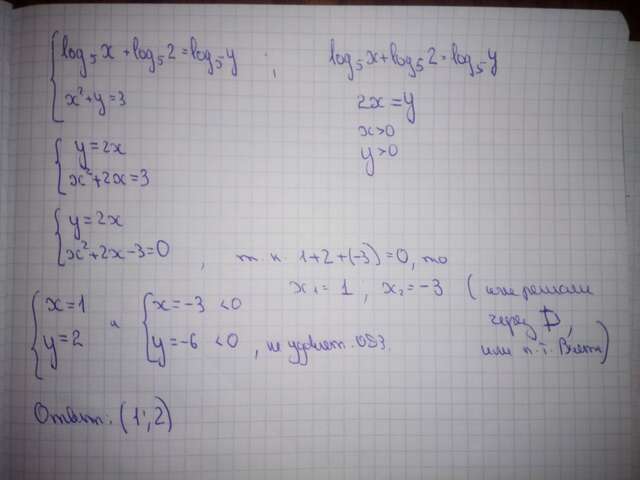 { log₅x + log₅2 = log₅y ; log₅x + log₅2 = log₅y
{ x² + y = 3 2x = y
x > 0
y > 0
{ y = 2x
{ x² + 2x = 3
{ y = 2x
{ x² + 2x - 3 = 0 , т.к 1 + 2 + (-3) = 0, то
x₁ = 1 ; x₂ = -3 (или решаем
через D,
или по т. Виета)
{ x = 1 и { x = -3 < 0
{ y = 2 { y = -6 < 0 , не удовлет. ОДЗ.
Ответ: (1; 2)